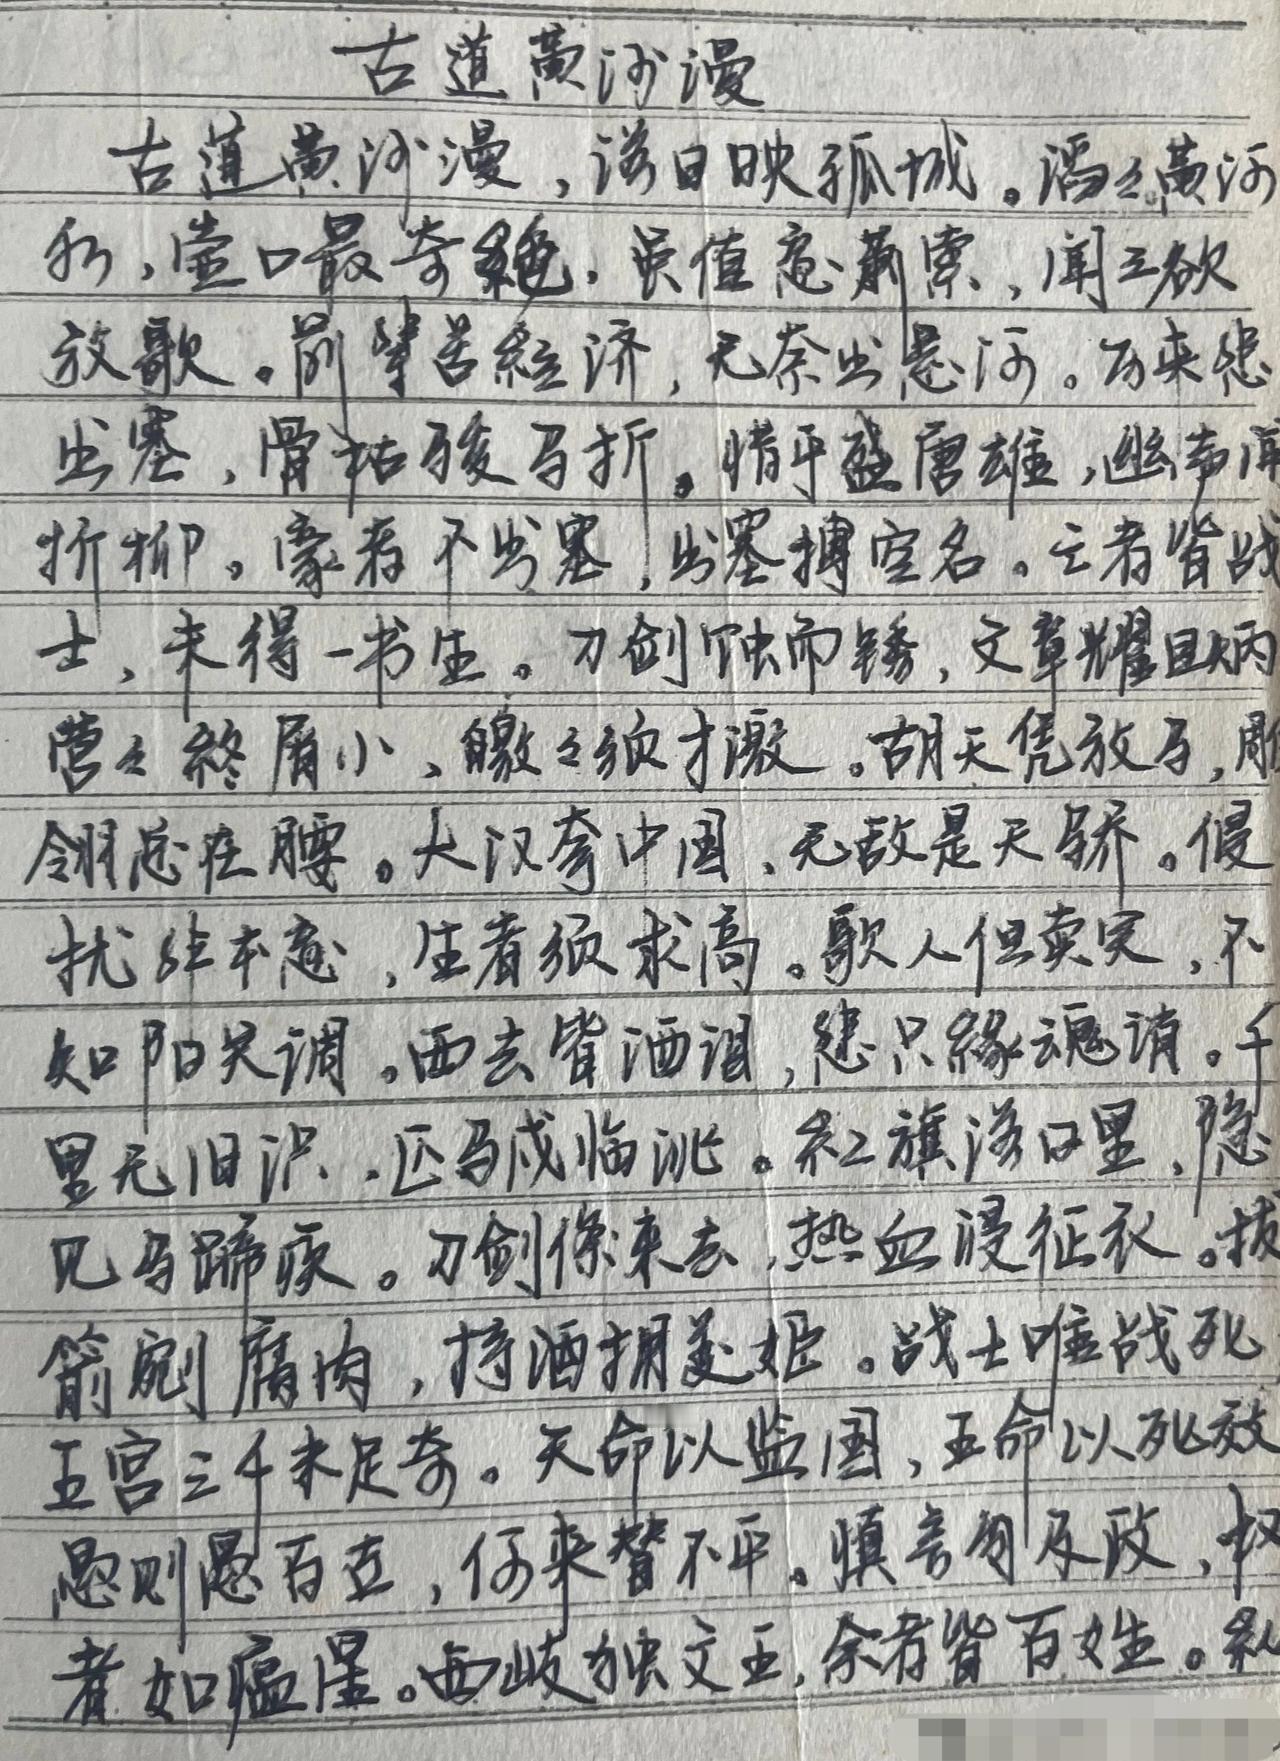 古道黄沙漫
古道黄沙漫，落日映孤城。滔々黄河
水，壶口最奇绝，虽值意萧索，闻之欲
放歌。前辈苦经济，无奈出悬河。历来愁
出塞，骨枯骏马折。惜乎盛唐雄，幽幽闻
折柳。豪杰不出塞，出塞搏空名。亡者皆战
士，未得一书生。刀剑蚀而锈，文章耀且炳
营々终屑小，皦々须才激。胡天凭放马，雕
翎总在腰。大汉夸中国，无敌是天骄。侵
扰非本意，生者须求高。歌人但卖哭，不
知阳关调。西去皆洒泪，愁只缘魂销。千
里无旧识，匹马戍临洮。红旗落日里，隐
见马蹄疾。刀剑倏来去，热血浸征衣。拔
箭剜腐肉，持酒拥美姬。战士唯战死
王宫三千未足奇。天命以监国，王命以死效
愚则愚百立，何来替不平。慎言勿及政，权
者如瘟星。西岐独文王，余者皆百姓。纵